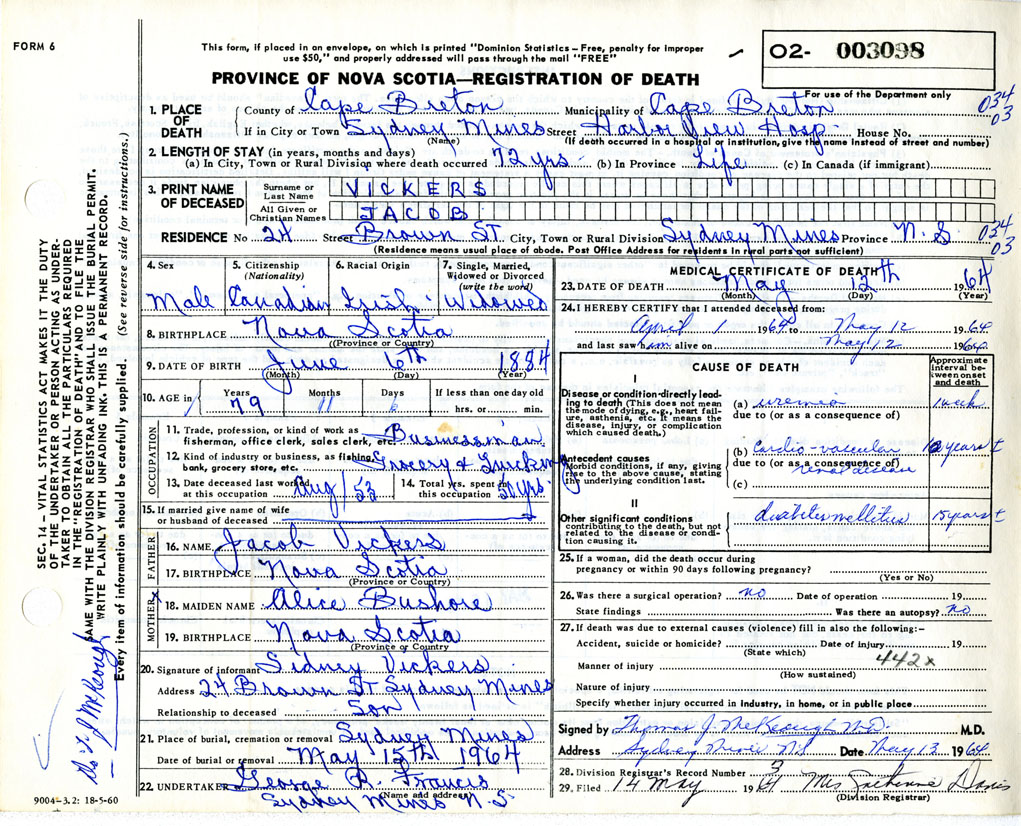 FORM 6
This form, if placed in an envelope, on which is printed "Dominion Statistics – Free, penalty for improper
use $50," and properly addressed will pass through the mail "FREE"
O2- 003098
For use of the Department only
PROVINCE OF NOVA SCOTIA—REGISTRATION OF DEATH
1. PLACE OF DEATH County of Cape Breton Municipality of Cape Breton 034 03
If in City or Town Sydney Mines Street Harbor View Hosp. House No.
(Name) (If death occurred in a hospital or institution, give the name instead of street and number)
2. LENGTH OF STAY (in years, months and days)
(a) In City, Town or Rural Division where death occurred 72 yrs. (b) In Province Life (c) In Canada (if immigrant)
3. PRINT NAME OF DECEASED Surname or Last Name VICKERS
All Given or Christian Names JACOB
RESIDENCE No 24 Street Brown ST City, Town or Rural Division Sydney Mines Province N.S 034 03
(Residence means usual place of abode. Post Office Address for residents in rural parts not sufficient)
4. Sex 5. Citizenship (Nationality) 6. Racial Origin 7. Single, Married, Widowed or Divorced (write the word)
Male Canadian Irish Widowed
8. BIRTHPLACE Nova Scotia
(Province or Country)
9. DATE OF BIRTH June 6th 1884
(Month) (Day) (Year)
10. AGE in Years Months Days If less than one day old
79 11 6 hrs. or min.
OCCUPATION
11. Trade, profession, or kind of work as fisherman, office clerk, sales clerk, etc. Businessman
12. Kind of industry or business, as fishing, bank, grocery store, etc. Grocery & Trucking
13. Date deceased last worked at this occupation Aug/53 14. Total yrs. spent in this occupation 50 yrs.
15. If married give name of wife or husband of deceased
FATHER
16. NAME Jacob Vickers
17. BIRTHPLACE Nova Scotia
(Province or Country)
MOTHER
18. MAIDEN NAME Alice Bushore
19. BIRTHPLACE Nova Scotia
(Province or Country)
20. Signature of informant Sidney Vickers
Address 24 Brown ST Sydney Mines
Relationship to deceased Son
21. Place of burial, cremation or removal Sydney Mines
Date of burial or removal May 15th 1964
22. UNDERTAKER George R. Francis
(Name and address)
Sydney Mines N.S
MEDICAL CERTIFICATE OF DEATH
23. DATE OF DEATH May 12th 1964
(Month) (Day) (Year)
24. I HEREBY CERTIFY that I attended deceased from:
April 1 1964 to May 12 1964
and last saw him alive on May 12 1964
CAUSE OF DEATH Approximate interval between onset and death
I
Disease or condition directly leading to death (This does not mean the mode of dying, e.g., heart failure, asthenia, etc. It means the disease, injury, or complication which caused death.)
(a) uremia 1 week
due to (or as a consequence of)
Antecedent causes
Morbid conditions, if any, giving rise to the above cause, stating the underlying condition last.
(b) cardio-vascular years
due to (or as a consequence of)
renal disease
(c)
II
Other significant conditions contributing to the death, but not related to the disease or condition causing it.
diabetes mellitus 15 years
25. If a woman, did the death occur during
pregnancy or within 90 days following pregnancy?
(Yes or No)
26. Was there a surgical operation? no Date of operation 19
State findings Was there an autopsy? no
27. If death was due to external causes (violence) fill in also the following:–
Accident, suicide or homicide? Date of injury 19
(State which) 442x
Manner of injury
(How sustained)
Nature of injury
Specify whether injury occurred in industry, in home, or in public place
Signed by Thomas J. McKeough M.D. M.D.
Address Sydney Mines N.S Date May 13 1964
28. Division Registrar's Record Number 3
29. Filed 14 May 1964 Mrs Davis
(Division Registrar)
SEC. 14 – VITAL STATISTICS ACT MAKES IT THE DUTY
OF THE UNDERTAKER OR PERSON ACTING AS UNDER-
TAKER TO OBTAIN ALL THE PARTICULARS REQUIRED
IN THE "REGISTRATION OF DEATH" AND TO FILE THE
SAME WITH THE DIVISION REGISTRAR WHO SHALL ISSUE THE BURIAL PERMIT.
WRITE PLAINLY WITH UNFADING INK. THIS IS A PERMANENT RECORD.
Every item of information should be carefully supplied. (See reverse side for instructions.)
J McKeough
9004–3.2: 18-5-60